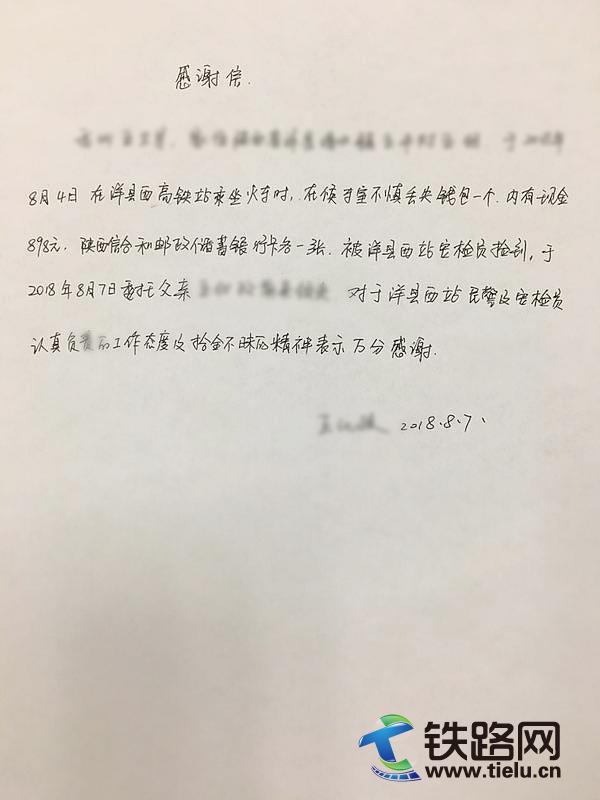 感谢信.
8月4日在洋县西高铁站乘坐火车时,在候车室不慎丢失钱包一个.内有现金
898元.陕西信合和邮政储蓄银行卡各一张.被洋县西站安检员捡到,于
2018年8月7日委托父亲 对于洋县西站民警及安检员
认真负责的工作态度及拾金不昧的精神表示万分感谢.
2018.8.7、
铁路网
www.tielu.cn